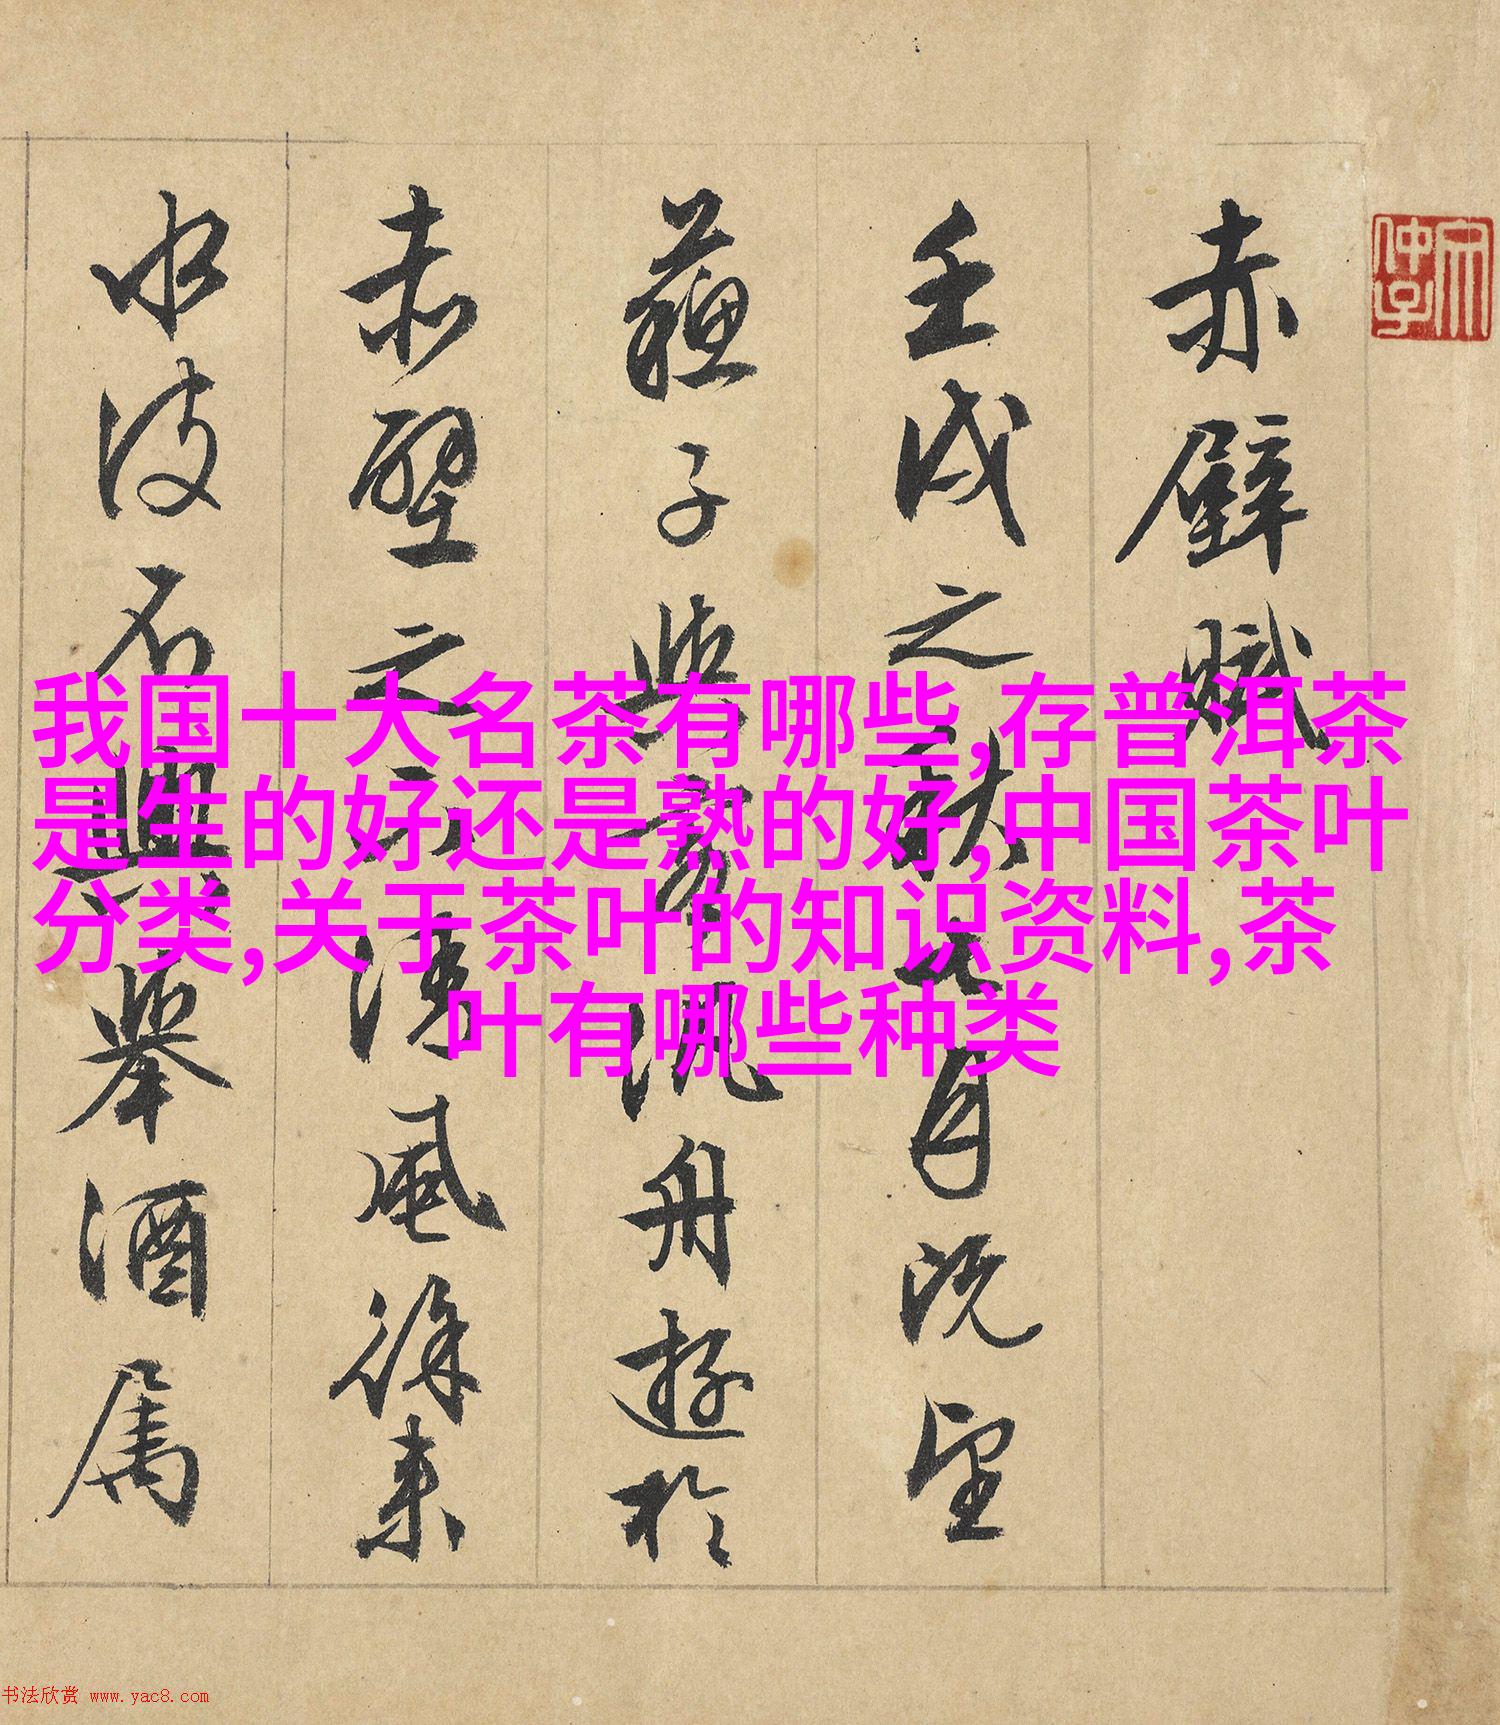 赤壁賦
壬戌之秋七月既望
蘇子與客泛舟遊於
赤壁之下清風徐來
水波不興舉酒屬
我国十大名茶有哪些,存普洱茶
是生的好还是熟的好,中国茶叶
分类,关于茶叶的知识资料,茶
叶有哪些种类
书法欣赏 www.yac8.com